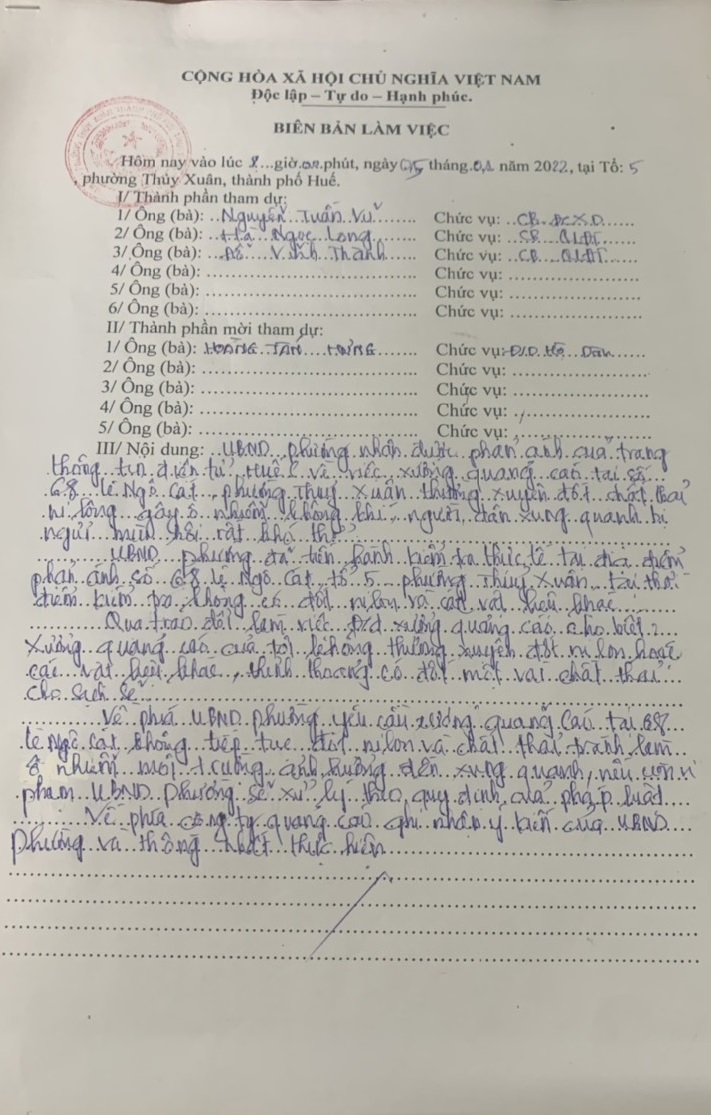 CỘNG HÒA XÃ HỘI CHỦ NGHĨA VIỆT NAM
Độc lập – Tự do – Hạnh phúc.
BIÊN BẢN LÀM VIỆC
Hôm nay vào lúc 8...giờ.00.phút, ngày 05 tháng 01 năm 2022, tại Tổ: 5
, phường Thủy Xuân, thành phố Huế.
I/ Thành phần tham dự:
1/ Ông (bà): Nguyễn Tuấn Vũ Chức vụ: CB ĐCXD
2/ Ông (bà): Hà Ngọc Long Chức vụ: CB QLĐT
3/ Ông (bà): Đỗ Vĩnh Thành Chức vụ: CB QLĐT
4/ Ông (bà): Chức vụ:
5/ Ông (bà): Chức vụ:
6/ Ông (bà): Chức vụ:
II/ Thành phần mời tham dự:
1/ Ông (bà): HOÀNG TẤN HƯNG Chức vụ: Đ/D Hộ Dân
2/ Ông (bà): Chức vụ:
3/ Ông (bà): Chức vụ:
4/ Ông (bà): Chức vụ:
5/ Ông (bà): Chức vụ:
III/ Nội dung: UBND phường nhận được phản ánh của trang
thông tin điện tử Huế về việc xưởng quảng cáo tại số
68 Lê Ngô Cát, phường Thủy Xuân thường xuyên đốt chất thải
ni lông gây ô nhiễm không khí, người dân xung quanh bị
ngửi mùi hôi rất khó thở
UBND phường đã tiến hành kiểm tra thực tế tại địa điểm
phản ánh số 68 Lê Ngô Cát tổ 5 phường Thủy Xuân tại thời
điểm kiểm tra không có đốt nilon và các vật liệu khác
Qua trao đổi làm việc đ/d xưởng quảng cáo cho biết:
Xưởng quảng cáo của tôi không thường xuyên đốt ni lon hoặc
các vật liệu khác, thỉnh thoảng có đốt một vài chất thải
cho sạch sẽ
Về phía UBND phường yêu cầu xưởng quảng cáo tại 68
Lê Ngô Cát không tiếp tục đốt nilon và chất thải tránh làm
ô nhiễm môi trường ảnh hưởng đến xung quanh, nếu còn vi
phạm UBND phường sẽ xử lý theo quy định của pháp luật
Về phía công ty quảng cáo ghi nhận ý kiến của UBND
phường và thống nhất thực hiện